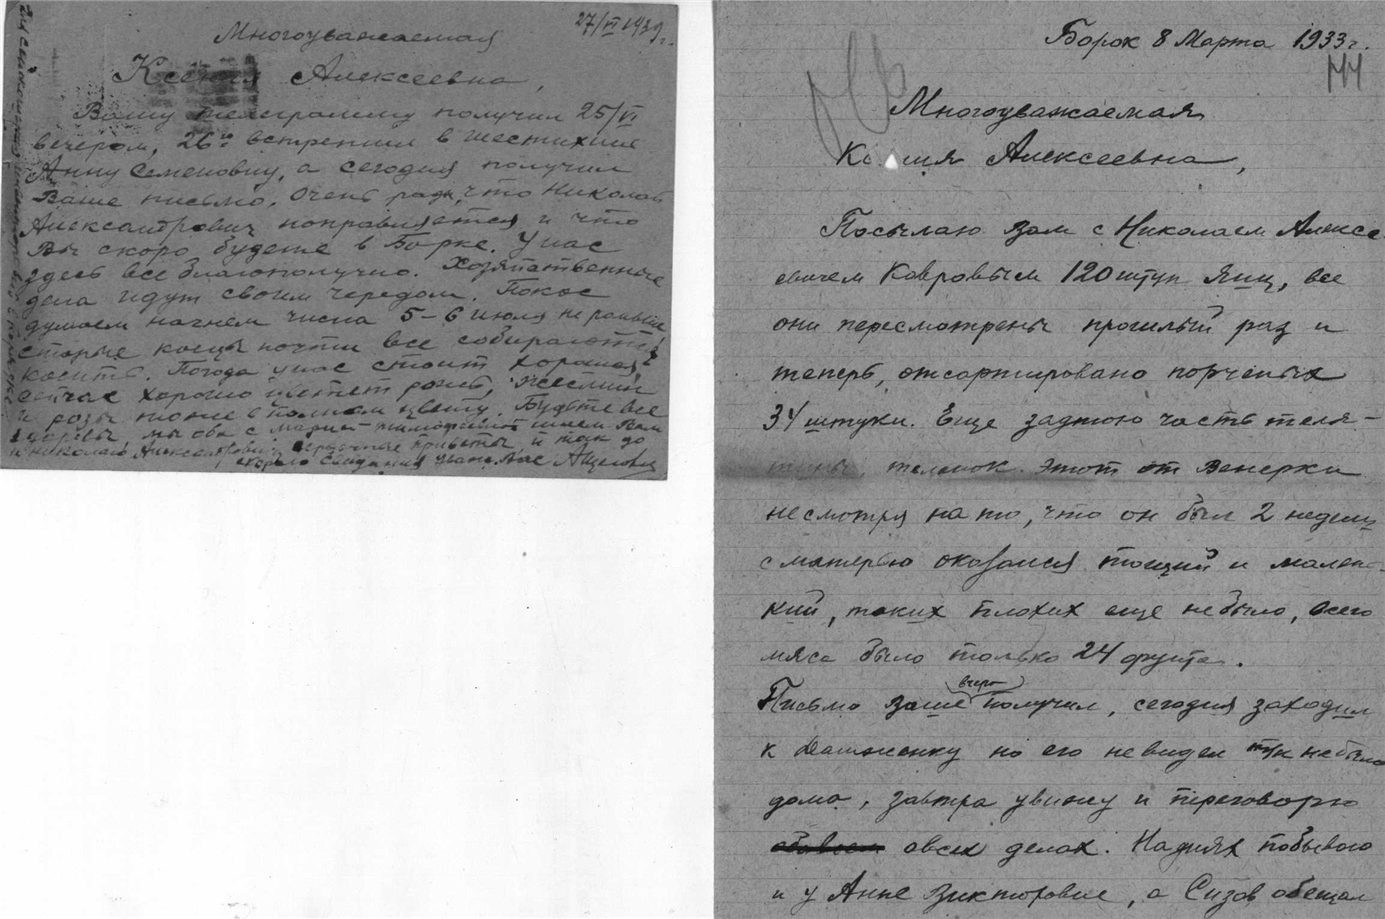 27/VI 1939г.
Многоуважаемая
Ксения Алексеевна,
Вашу телеграмму получил 25/VI
вечером, 26го встретил в Шестихине
Анну Семеновну, а сегодня получил
Ваше письмо. Очень рады, что Николай
Александрович поправляется и что
Вы скоро будете в Борке. У нас
здесь все благополучно. Хозяйственные
дела идут своим чередом. Покос
думаем начнем числа 5-6 июля не раньше
старые косцы почти все собираются
косить. Погода у нас стоит хорошая,
сейчас хорошо цветет рожь, жасмин
и розы тоже в полном цвету. Будьте все
здоровы, мы оба с Марией Тимофеевной шлем Вам
и Николаю Александровичу сердечные приветы и так до
скорого свидания уваж. Вас
Борок 8 Марта 1933г.
Многоуважаемая
Ксения Алексеевна,
Посылаю Вам с Николаем Алексе
евичем Ковровым 120 штук яиц, все
они пересмотрены прошлый раз и
теперь, отсортировано порченых
34 штуки. Еще заднюю часть теля-
тины, теленок этот от Венерки
несмотря на то, что он был 2 недели
с матерью оказался тощий и малень-
кий, таких плохих еще не было, всего
мяса было только 24 фунта.
Письмо Ваше вчера получил, сегодня заходил
к но его не видел т/к не было
дома, завтра увижу и переговорю
о всех делах. На днях побываю
и у Анне Викторовне, а Сизов обещал